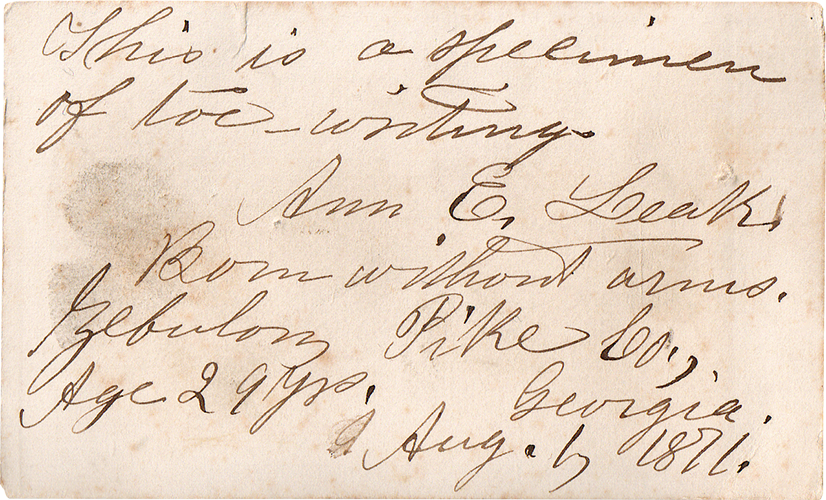 This is a specimen
of toe-writing.
Ann E. Leak.
Born without arms.
Zebulon, Pike Co.,
Georgia.
Age 29 Yrs.
Aug. 1, 1871.